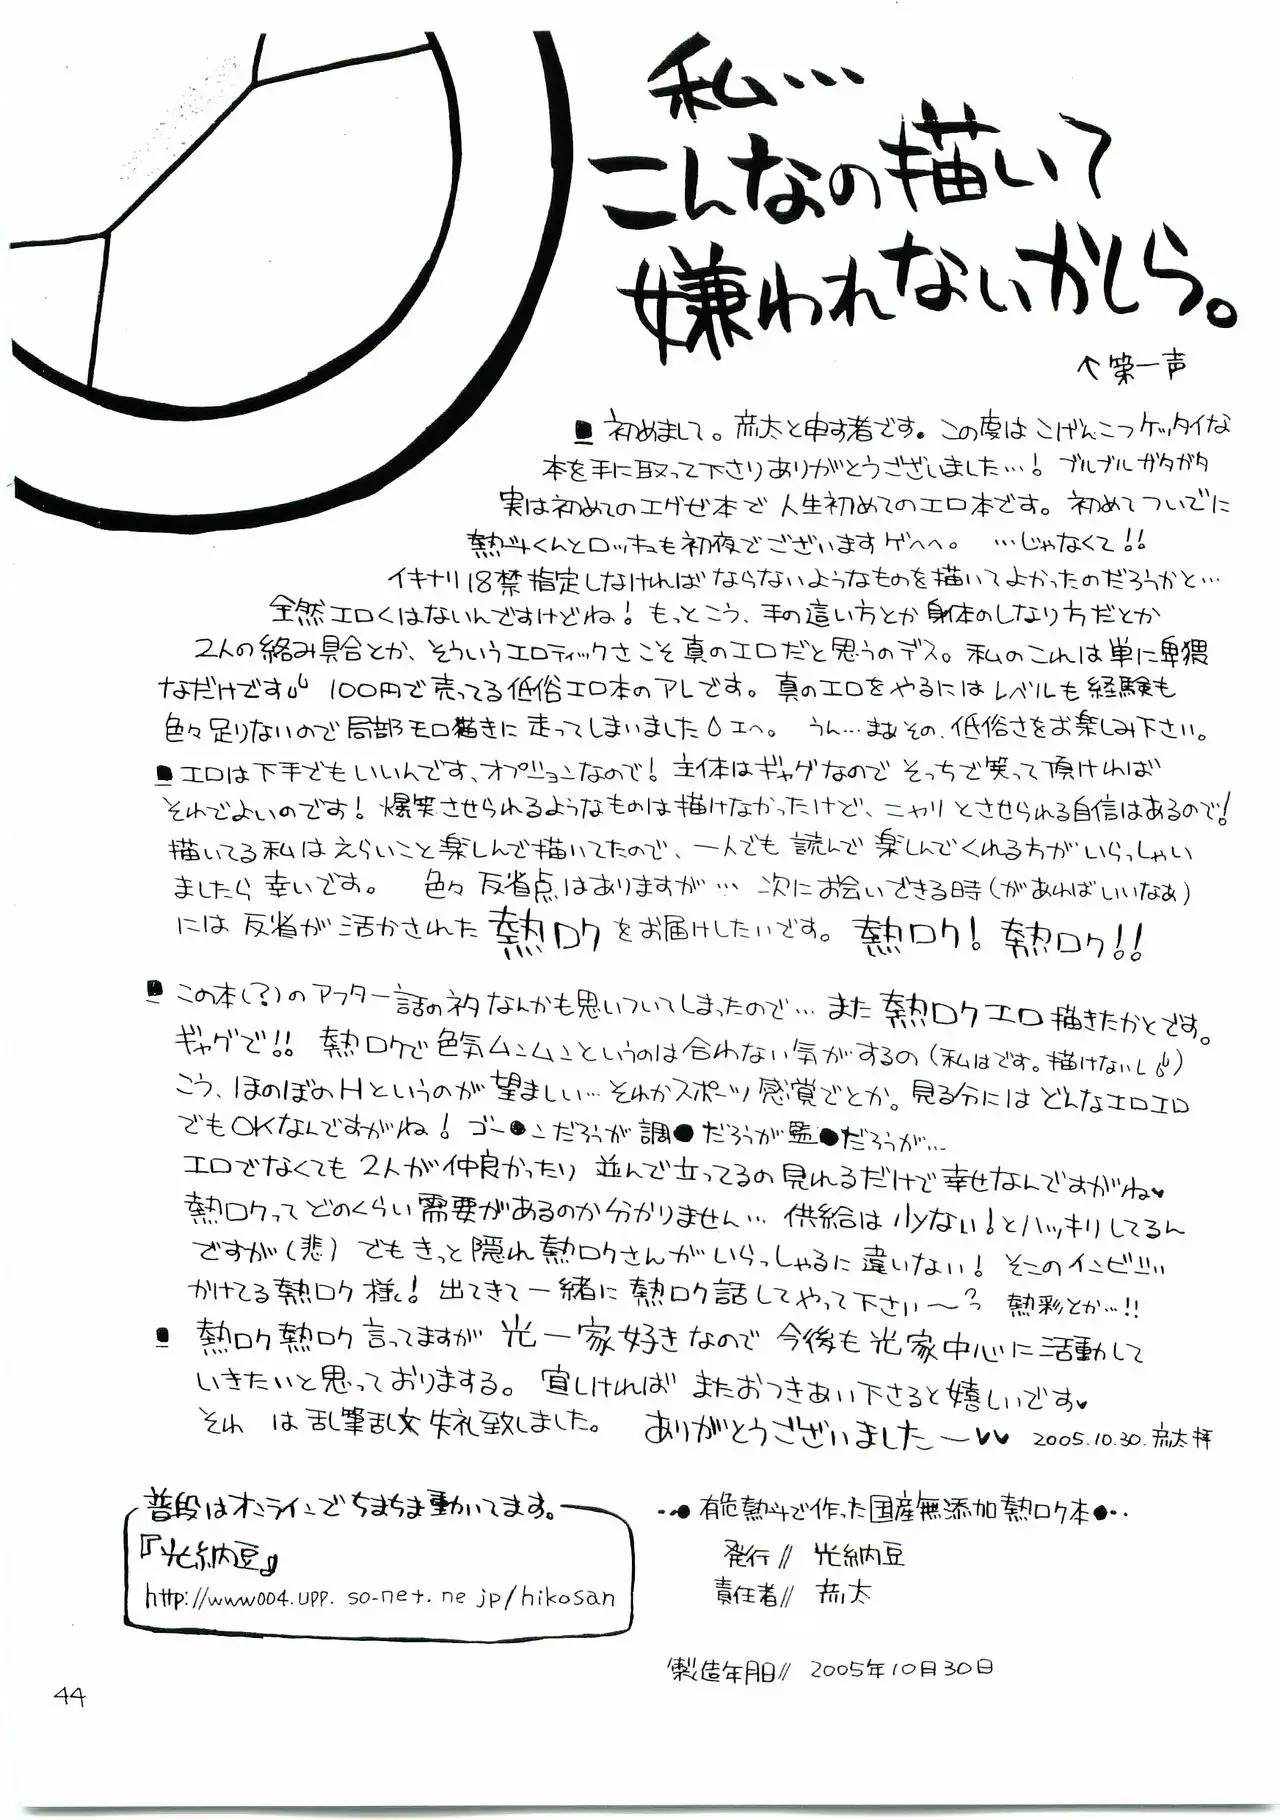 私…
こんなの描いて
嫌われないかしら。
↑第一声
■ 初めまして。彦太と申す者です。この度はこげんこつケッタイな
本を手に取って下さりありがとうございました…! ブルブルガタガタ
実は初めてのエグゼ本で人生初めてのエロ本です。初めてついでに
熱斗くんとロックも初夜でございますゲヘヘ。 …じゃなくて!!
イキナリ18禁指定しなければならないようなものを描いてよかったのだろうかと…
全然エロくはないんですけどね! もっとこう、手の這い方とか身体のしなり方だとか
2人の絡み具合とか、そういうエロティックさこそ真のエロだと思うのデス。私のこれは単に卑猥
なだけです 100円で売ってる低俗エロ本のアレです。真のエロをやるにはレベルも経験も
色々足りないので局部モロ描きに走ってしまいました エヘ。 うん…まぁその、低俗さをお楽しみ下さい。
■ エロは下手でもいいんです、オプションなので! 主体はギャグなのでそっちで笑って頂ければ
それでよいのです! 爆笑させられるようなものは描けなかったけど、ニヤリとさせられる自信はあるので!
描いてる私はえらいこと楽しんで描いてたので、一人でも読んで楽しんでくれる方がいらっしゃい
ましたら幸いです。 色々反省点はありますが… 次にお会いできる時(があればいいなぁ)
には反省が活かされた熱ロクをお届けしたいです。 熱ロク! 熱ロク!!
■ この本(?)のアフター話のネタなんかも思いついてしまったので… また熱ロクエロ描きたかとです。
ギャグで!! 熱ロクで色気ムンムンというのは合わない気がするの(私はです。描けないし)
こう、ほのぼのHというのが望ましい… それかスポーツ感覚でとか。見る分にはどんなエロエロ
でもOKなんですがね! ゴー●ンだろうが調●だろうが監●だろうが…
エロでなくても2人が仲良かったり並んで立ってるの見れるだけで幸せなんですがね♥
熱ロクってどのくらい需要があるのか分かりません… 供給は少ない!とハッキリしてるん
ですが(悲) でもきっと隠れ熱ロクさんがいらっしゃるに違いない! そこのインビジ
かけてる熱ロク様! 出てきて一緒に熱ロク話してやって下さい〜? 熱彩とか…!!
■ 熱ロク熱ロク言ってますが光一家好きなので今後も光家中心に活動して
いきたいと思っておりまする。 宜しければまたおつきあい下さると嬉しいです♥
それ は乱筆乱文失礼致しました。 ありがとうございました〜♥♥ 2005.10.30.彦太拝
普段はオンラインでちまちま動いてます。
『光納豆』
http://www004.upp.so-net.ne jp/hikosan
…● 有危熱斗で作った国産無添加熱ロク本●…
発行// 光納豆
責任者// 彦太
製造年月日// 2005年10月30日
44